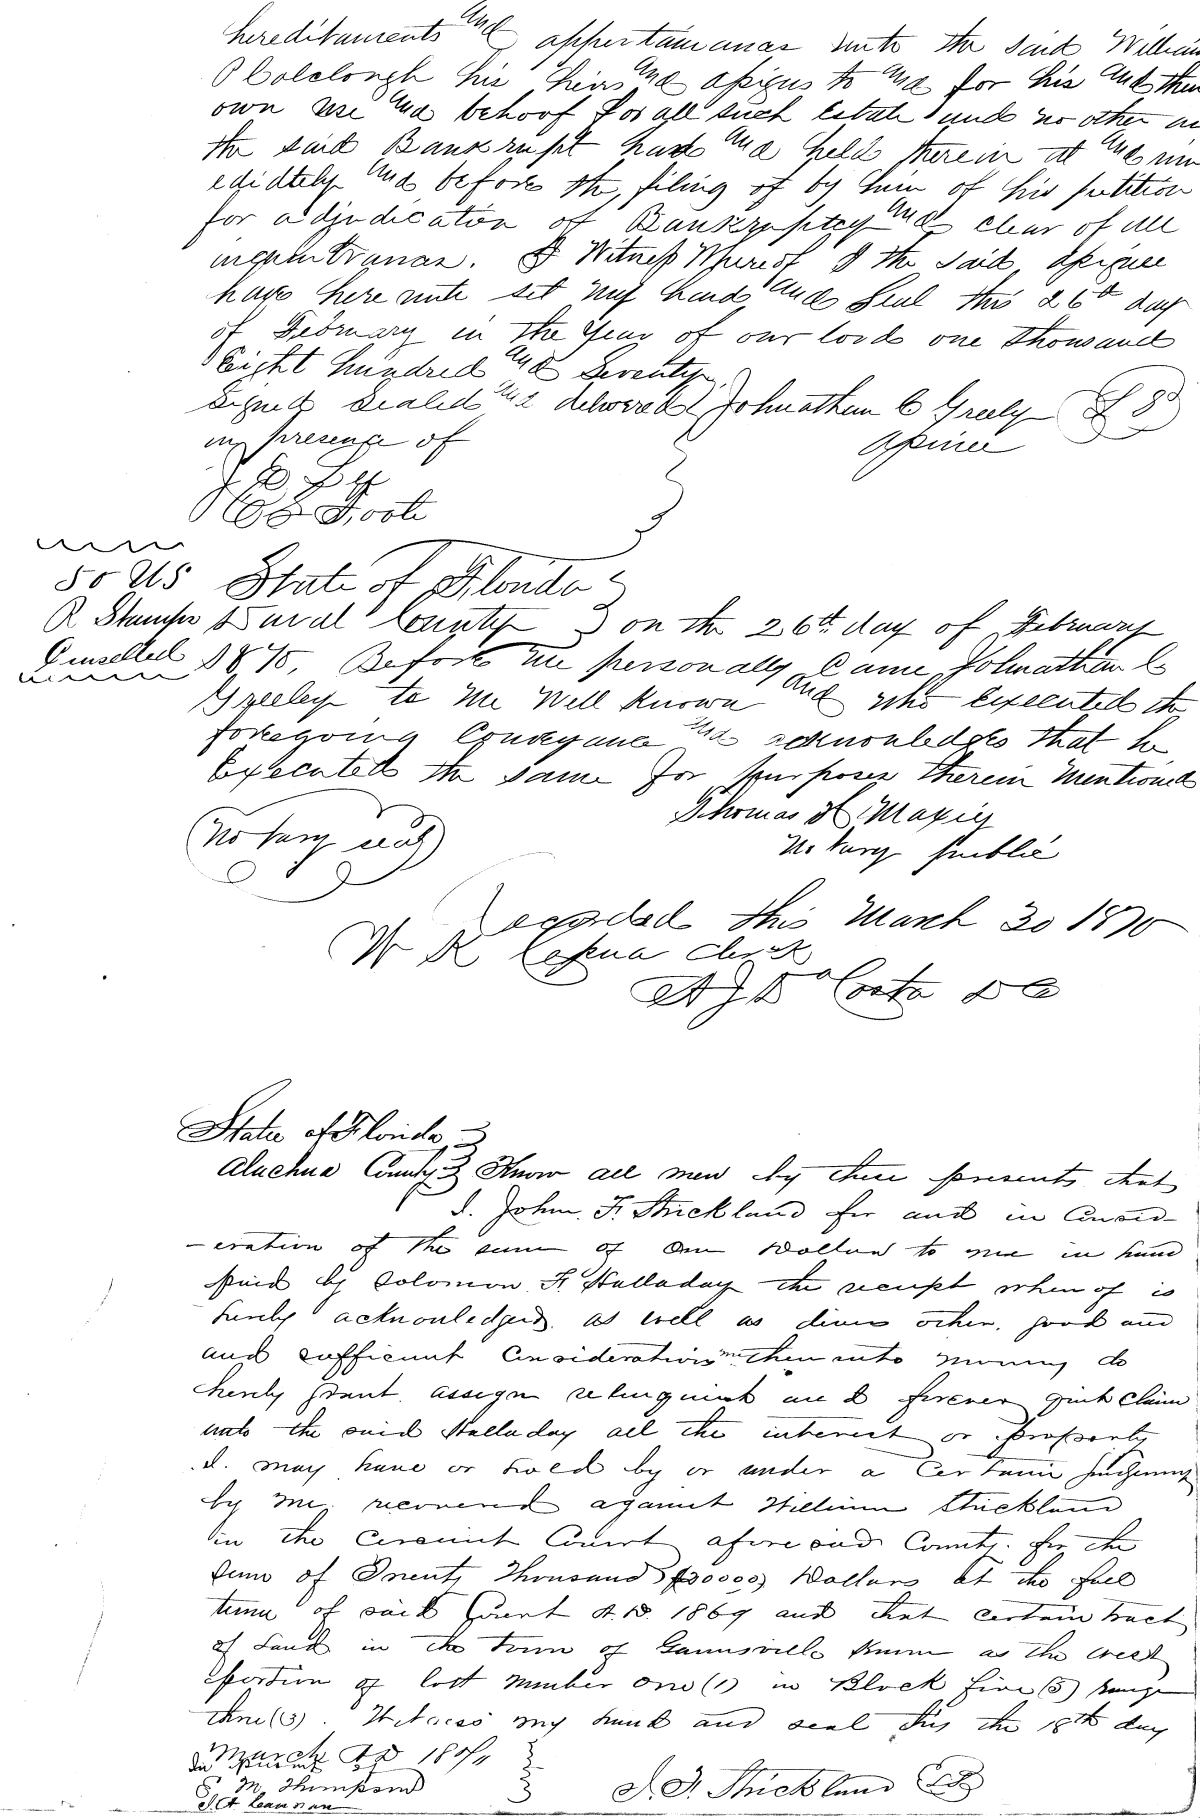 hereditaments and appertainances unto the said William
P Colclough his heirs and assigns to and for his and their
own use and behoof for all such Estate and no other as
the said Bankrupt had and held therein at and imm
ediatly and before the, filing of by him of his petition
for adjudication of Bankruptcy and clear of all
incumbrances. I Witness Whereof I the said, assignee
have here unto set my hand and Seal this 26th day
of February in the Year of our lord one thousand
Eight hundred and Seventy.
Signed Sealed and delivered Johnathan C Greely L S
in presence of assinee
Foote
50 US State of Florida
R Stamps Duval County on the 26th day of February
Cinselled 1870, Before me personally Came Johnathan C
Greeley to me Well Known and who executed the
foregoing Conveyance and acknowledges that he
Executed the same for purposes therein Mentioned
Thomas
Notary seal Notary public
Recorded this March 30 1870
W K Cessna clerk
A J Da Costa D C
State of Florida
Aluchua County Know all men by these presents that
I. John. F. Strickland for and in Consid-
-eration of the sum of One Dollar to me in hand
paid by Solomon F Halladay the receipt whereof is
hereby acknowledged. as well as divers other. good and
and sufficient Considerations me thereunto moving do
hereby grant. assign relinquish and forever quit claim
unto the said Halladay all the interest or property
I. may have or hold by or under a Certain judgment
by me. recovered against William Strickland
in the Circuit Court aforesaid County. for the
Sum of Twenty Thousand Dollars at the fall
term of said Court A.D. 1869 and that certain tract
of Land in the town of Gainsville known as the west
portion of lott number one (1) in Block five (5) range
three (3). Witness my hand and seal this the 18th day
March AD
In presence of
S. M. Thompson J. F. Strickland LS